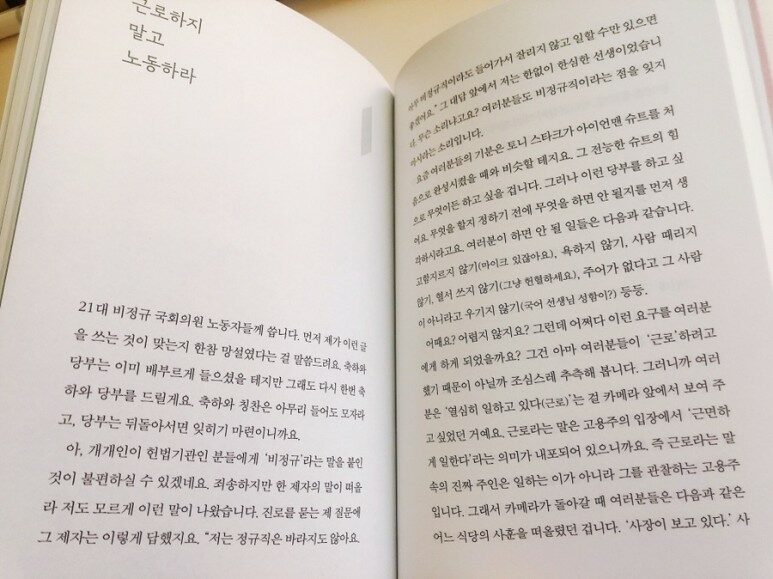 근로하지
말고
노동하라
21대 비정규 국회의원 노동자들께 씁니다. 먼저 제가 이런 글
을 쓰는 것이 맞는지 한참 망설였다는 걸 말씀드려요. 축하와
당부는 이미 배부르게 들으셨을 테지만 그래도 다시 한번 축
하와 당부를 드릴게요. 축하와 칭찬은 아무리 들어도 모자라
고, 당부는 뒤돌아서면 잊히기 마련이니까요.
아, 개개인이 헌법기관인 분들에게 ‘비정규’라는 말을 붙인
것이 불편하실 수 있겠네요. 죄송하지만 한 제자의 말이 떠올
라 저도 모르게 이런 말이 나왔습니다. 진로를 묻는 제 질문에
그 제자는 이렇게 답했지요. “저는 정규직은 바라지도 않아요.
아무 비정규직이라도 들어가서 잘리지 않고 일할 수만 있으면
좋겠어요.” 그 대답 앞에서 저는 한없이 한심한 선생이었습니
다. 무슨 소리냐고요? 여러분들도 비정규직이라는 점을 잊지
마시라는 소리입니다.
요즘 여러분들의 기분은 토니 스타크가 아이언맨 슈트를 처
음으로 완성시켰을 때와 비슷할 테지요. 그 전능한 슈트의 힘
으로 무엇이든 하고 싶을 겁니다. 그러나 이런 당부를 하고 싶
어요. 무엇을 할지 정하기 전에 무엇을 하면 안 될지를 먼저 생
각하시라고요. 여러분이 하면 안 될 일들은 다음과 같습니다.
고함지르지 않기(마이크 있잖아요), 욕하지 않기, 사람 때리지
않기, 멍석 쓰지 않기(그냥 헌혈하세요), 주어가 없다고 그 사람
이 아니라고 우기지 않기(국어 선생님 성함이?) 등등.
어때요? 어렵지 않지요? 그런데 어쩌다 이런 요구를 여러분
에게 하게 되었을까요? 그건 아마 여러분들이 ‘근로’하려고
했기 때문이 아닐까 조심스레 추측해 봅니다. 그러니까 여러
분은 ‘열심히 일하고 있다(근로)’는 걸 카메라 앞에서 보여 주
고 싶었던 거예요. 근로라는 말은 고용주의 입장에서 ‘근면하
게 일한다’라는 의미가 내포되어 있으니까요. 즉 근로라는 말
속의 진짜 주인은 일하는 이가 아니라 그를 관찰하는 고용주
입니다. 그래서 카메라가 돌아갈 때 여러분들은 다음과 같은
어느 식당의 사훈을 떠올렸던 겁니다. ‘사장이 보고 있다.’ 사